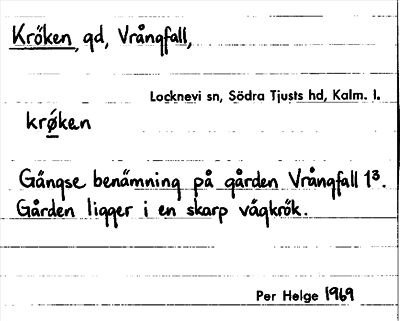 Kröken, gd, Vrångfall,
Locknevi sn, Södra Tjusts hd, Kalm. l.
krǿken
Gängse benämning på gården Vrångfall 1³.
Gården ligger i en skarp vägkrök.
Per Helge 1969